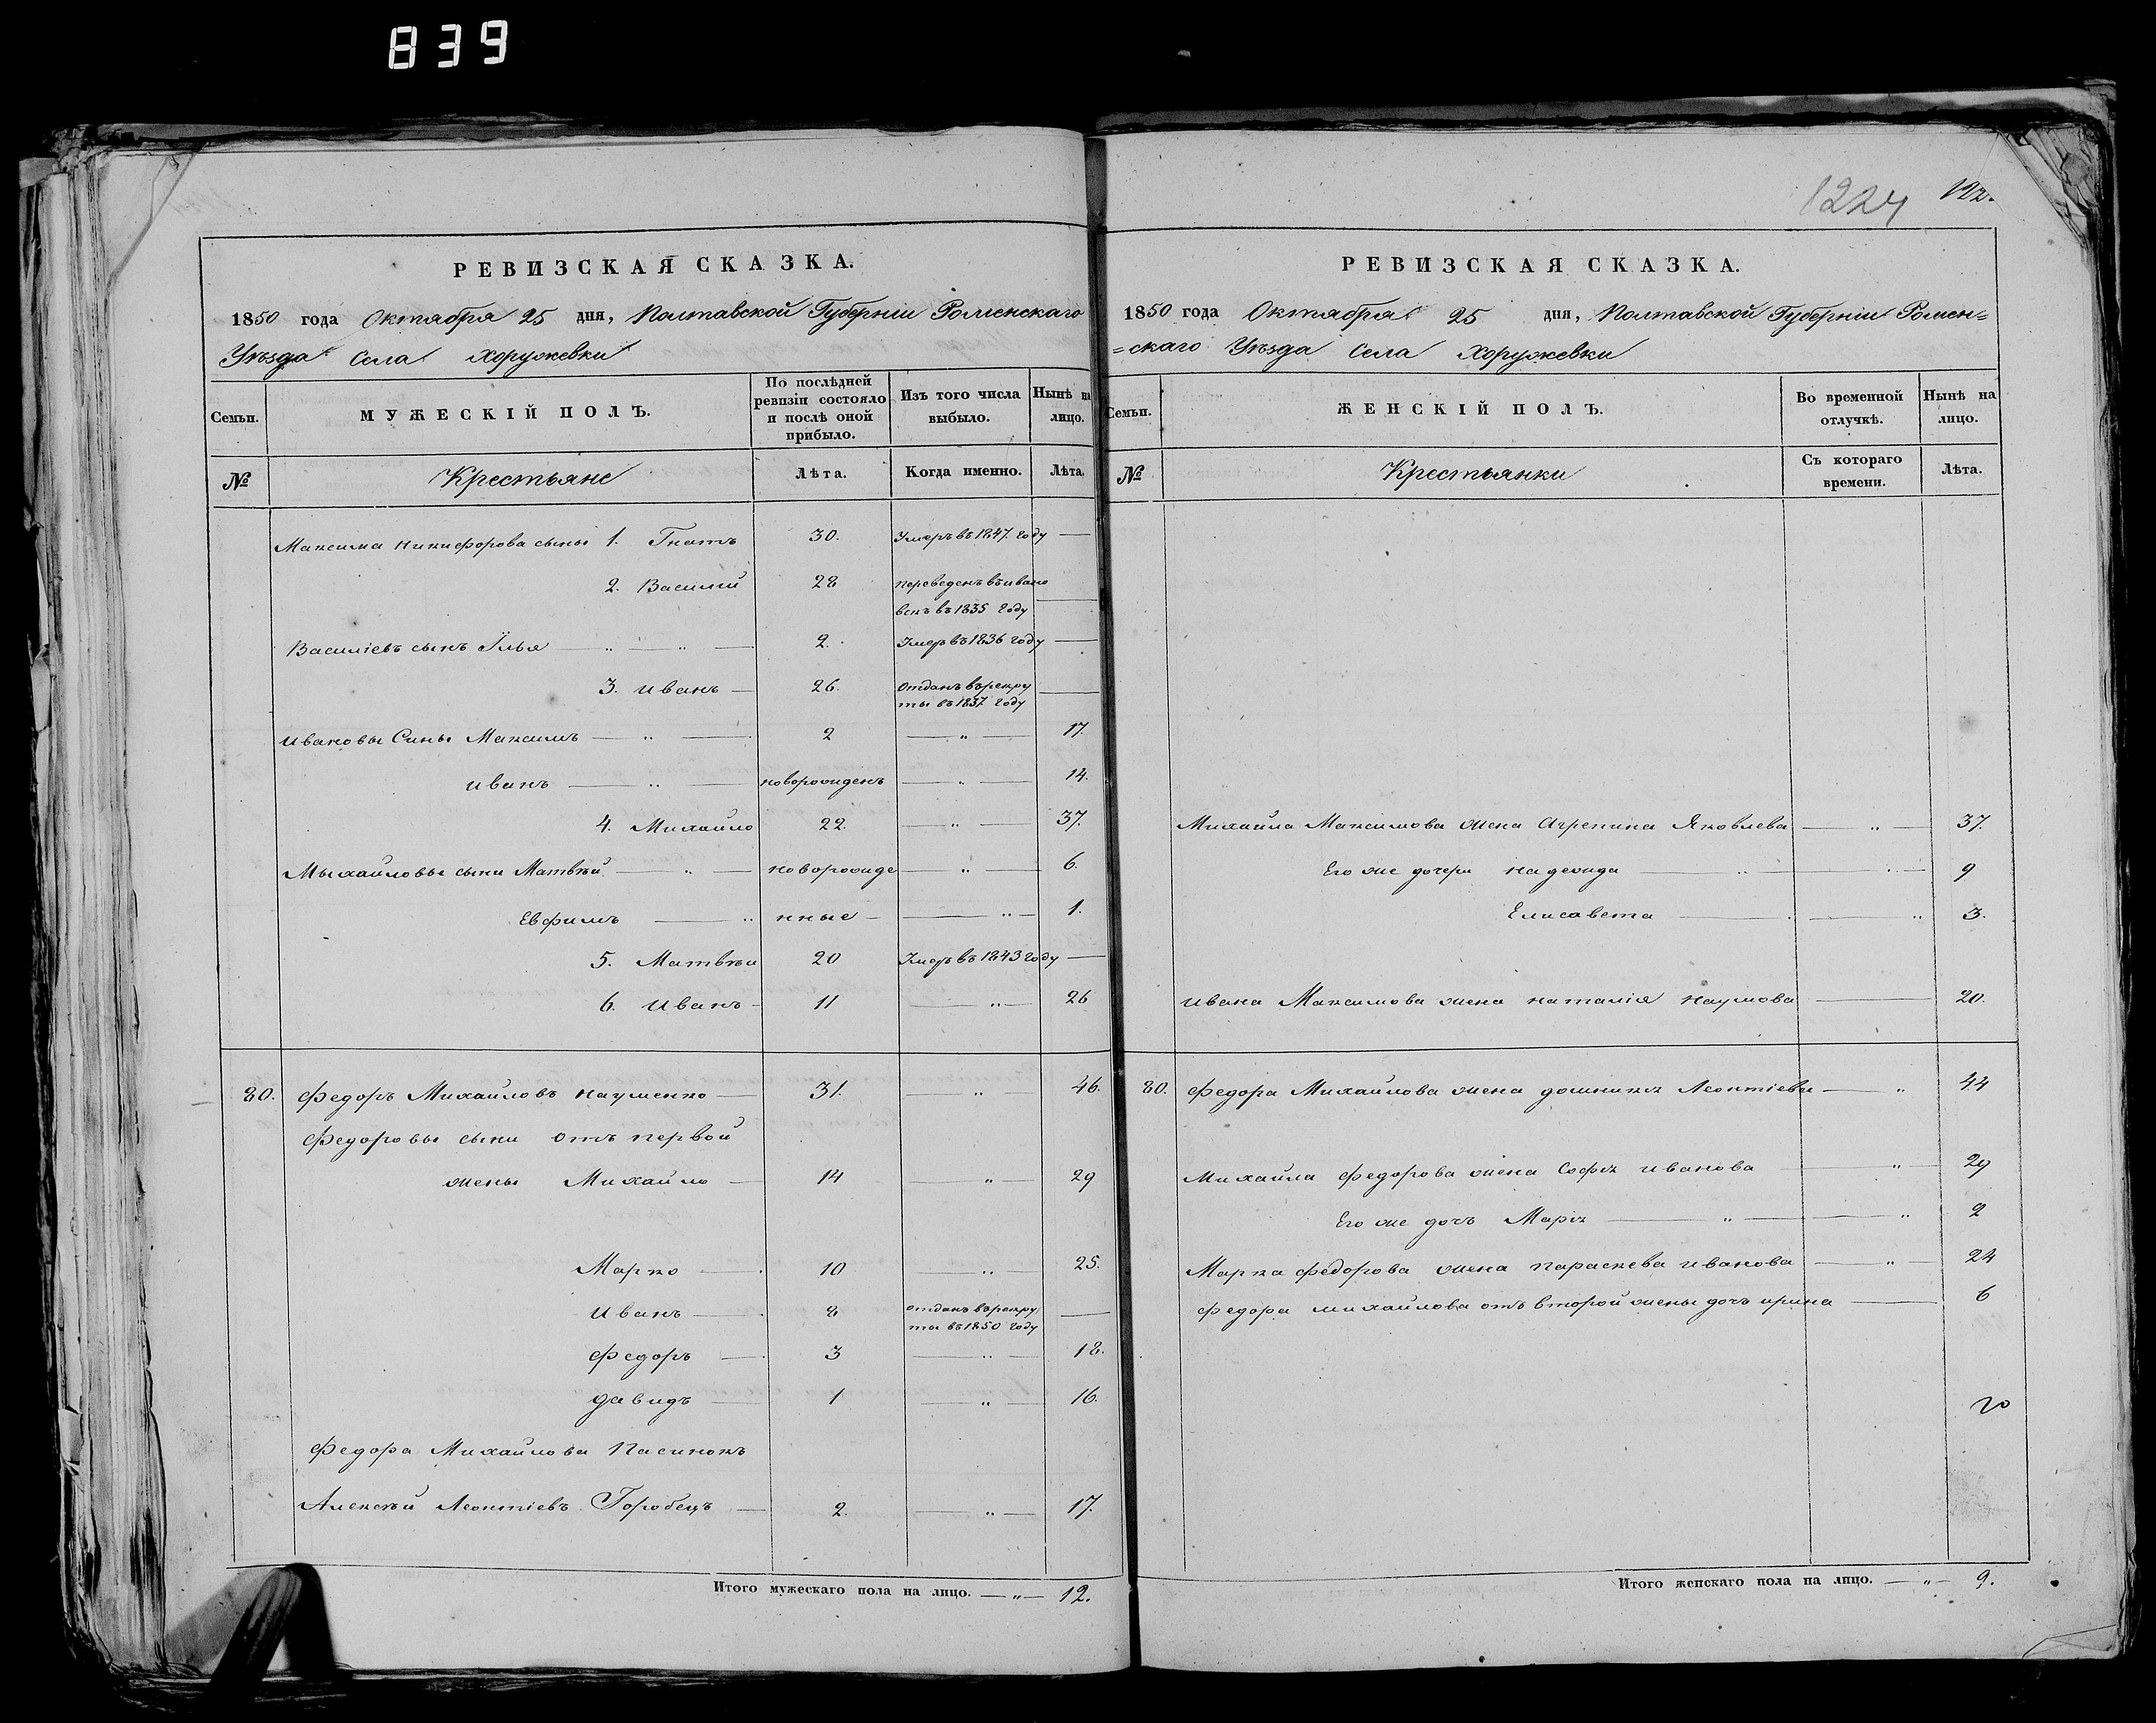 839
1224 122.
РЕВИЗСКАЯ СКАЗКА.
1850 года Октября 25 дня, Полтавской Губерніи Роменскаго
Уѣзда Села Хоружевки
Семьи. МУЖЕСКІЙ ПОЛЪ. По послѣдней ревизіи состояло и послѣ оной прибыло. Изъ того числа выбыло. Нынѣ на лицо.
№ Крестьяне Лѣта. Когда именно. Лѣта.
Максима Никифорова сыны 1. Гнатъ 30. Умеръ въ 1847. году —
2. Василий 28 переведенъ въ
въ 1835 году —
Василіевъ сынъ Илья 2. Умеръ въ 1836 году —
3. Иванъ — 26. отданъ въ рекру
ты въ 1837 году —
Ивановы Сыны Максимъ — „ — 2 — „ — 17.
Иванъ — „ — новорожденъ — „ — 14.
4. Михайло 22. — „ — 37.
Мыхайловы сыни Матвѣй — „ — новорожде — „ — 6.
Евфимъ — „ нные — — „ — 1.
5. Матвѣи 20 Умеръ въ 1843 году —
6. Иванъ — 11 — „ — 26
80. Федоръ Михайловъ Науменко — 31. — „ — 46.
Федоровы сыни отъ первой
жены Михайло — 14 — „ — 29
Марко — 10 — „ — 25.
Иванъ — 8 отданъ въ рекру
ты въ 1850 году —
Федоръ — 3 — „ — 18.
Давидъ — 1 — „ — 16.
Федора Михайлова Пасинокъ
Алексѣй Леонтіевъ Горобецъ — 2. — „ — 17.
Итого мужескаго пола на лицо. — „ — 12.
РЕВИЗСКАЯ СКАЗКА.
1850 года Октября 25 дня, Полтавской Губерніи Ромен=
=скаго Уѣзда Села Хоружевки
Семьи. ЖЕНСКІЙ ПОЛЪ. Во временной отлучкѣ. Нынѣ на лицо.
№ Крестьянки Съ котораго времени. Лѣта.
Михайла Максимова жена Агрепина Яковлева — „ — 37.
Его же дочери Надежда — „ — 9
Елисавета — „ 3.
Ивана Максимова жена Наталія Наумова — 20.
80. Федора Михайлова жена Домникя Леонтіева — „ 44
Михайла Федорова жена Софія Иванова — „ — 29
Его же дочъ Марія — „ — 2
Марка Федорова жена Параскева Иванова — „ — 24
Федора Михайлова отъ второй жены дочъ Ирина — 6
Итого женскаго пола на лицо. — „ — 9.